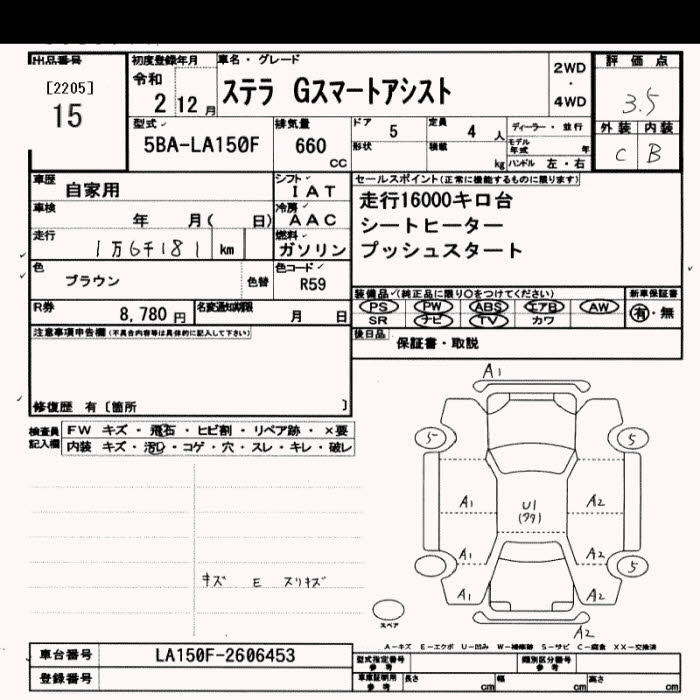 出品番号
[2205]
15
初度登録年月
令和
2 12 月
車名・グレード
ステラ Gスマートアシスト
2WD
・
4WD
評価点
3.5
型式
5BA-LA150F
排気量
660
CC
ドア
5
定員
4 人
ディーラー・並行
形状
積載
kg
モデル年式
年
ハンドル 左・右
外装 内装
C B
車歴
自家用
シフト
IAT
車検
年 月( 日)
冷房
AAC
走行
1万6千181 km
燃料
ガソリン
色
ブラウン
色替
色コード
R59
R券
8,780 円
名変通知期限
月 日
セールスポイント(正常に機能するものに限ります)
走行16000キロ台
シートヒーター
プッシュスタート
装備品(純正品に限り○をつけてください)
新車保証書
PS PW ABS エアB AW
SR ナビ TV カワ
有・無
後日品
保証書・取説
注意事項申告欄(不具合内容等は具体的に記入して下さい)
修復歴 有〔箇所 〕
検査員
記入欄
FW キズ・飛石・ヒビ割・リペア跡・×要
内装 キズ・汚れ・コゲ・穴・スレ・キレ・破レ
キズ E スリキズ
A1
5 5
A1 U1 A2
A1 A2
5
A1 A2
スペア
A2
A-キズ E-エクボ U-凹み W-補修跡 S-サビ C-腐食 XX-交換済
車台番号
LA150F-2606453
登録番号
型式指定番号
参考
類別区分番号
参考
車庫証明用
参考
長さ cm 幅 cm 高さ cm